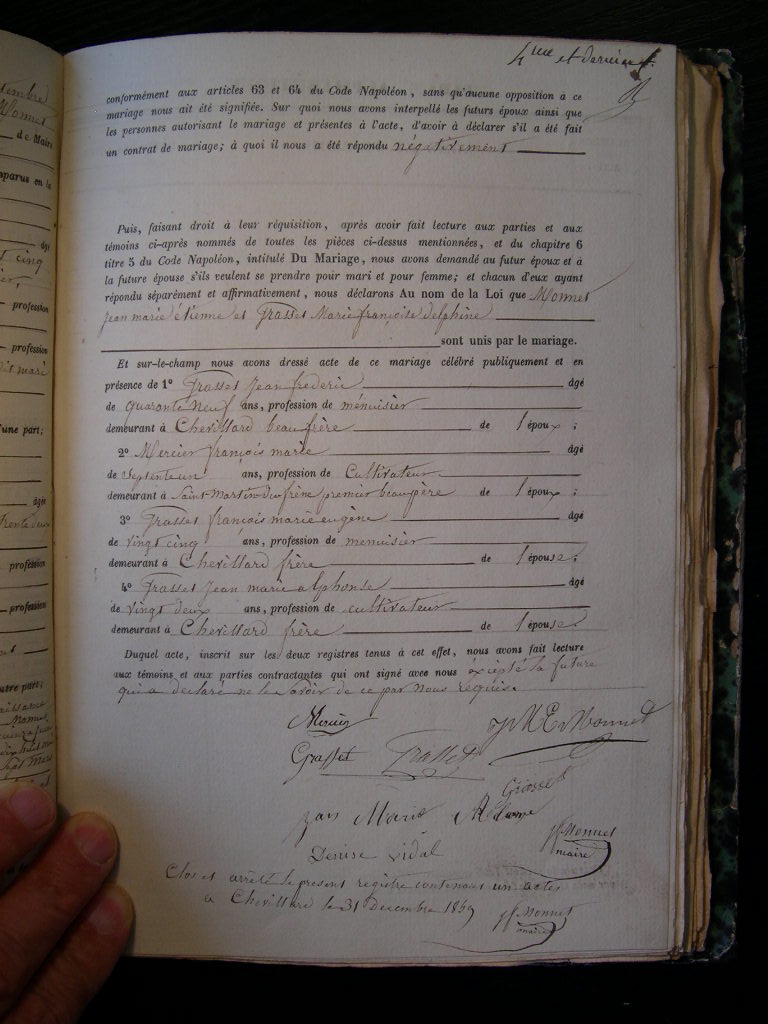 4me et dernier f.
conformément aux articles 63 et 64 du Code Napoléon, sans qu'aucune opposition a ce
mariage nous ait été signifiée. Sur quoi nous avons interpellé les futurs époux ainsi que
les personnes autorisant le mariage et présentes à l'acte, d'avoir à déclarer s'il a été fait
un contrat de mariage; à quoi il nous a été répondu négativement
Puis, faisant droit à leur réquisition, après avoir fait lecture aux parties et aux
témoins ci-après nommés de toutes les pièces ci-dessus mentionnées, et du chapitre 6
titre 5 du Code Napoléon, intitulé Du Mariage, nous avons demandé au futur époux et à
la future épouse s'ils veulent se prendre pour mari et pour femme; et chacun d'eux ayant
répondu séparément et affirmativement, nous déclarons Au nom de la Loi que Monnet
jean marie étienne et Grasset Marie françoise delphine
sont unis par le mariage.
Et sur-le-champ nous avons dressé acte de ce mariage célébré publiquement et en
présence de 1º Grasset Jean frederic âgé
de quarante neuf ans, profession de ménuisier
demeurant à Chevillard beau frère de l'époux ;
2º Mercier françois marie âgé
de septente un ans, profession de Cultivateur
demeurant à Saint-Martin-du frêne premier beau père de l'époux ;
3º Grasset françois marie eugène âgé
de vingt cinq ans, profession de menuisier
demeurant à Chevillard frère de l'épouse ;
4º Grasset Jean marie alphonse âgé
de vingt deux ans, profession de cultivateur
demeurant à Chevillard frère de l'épouse
Duquel acte, inscrit sur les deux registres tenus à cet effet, nous avons fait lecture
aux témoins et aux parties contractantes qui ont signé avec nous éxcépté la future
qui a déclaré ne le savoir de ce par nous requise.
Mercier JME Monnet
Grasset Grasset
Grasset
jean Marie
Denise Vidal Monnet
maire
Clos et arrêté le present registre contenant un actes
a Chevillard le 31 Decembre 1859 Monnet
maire